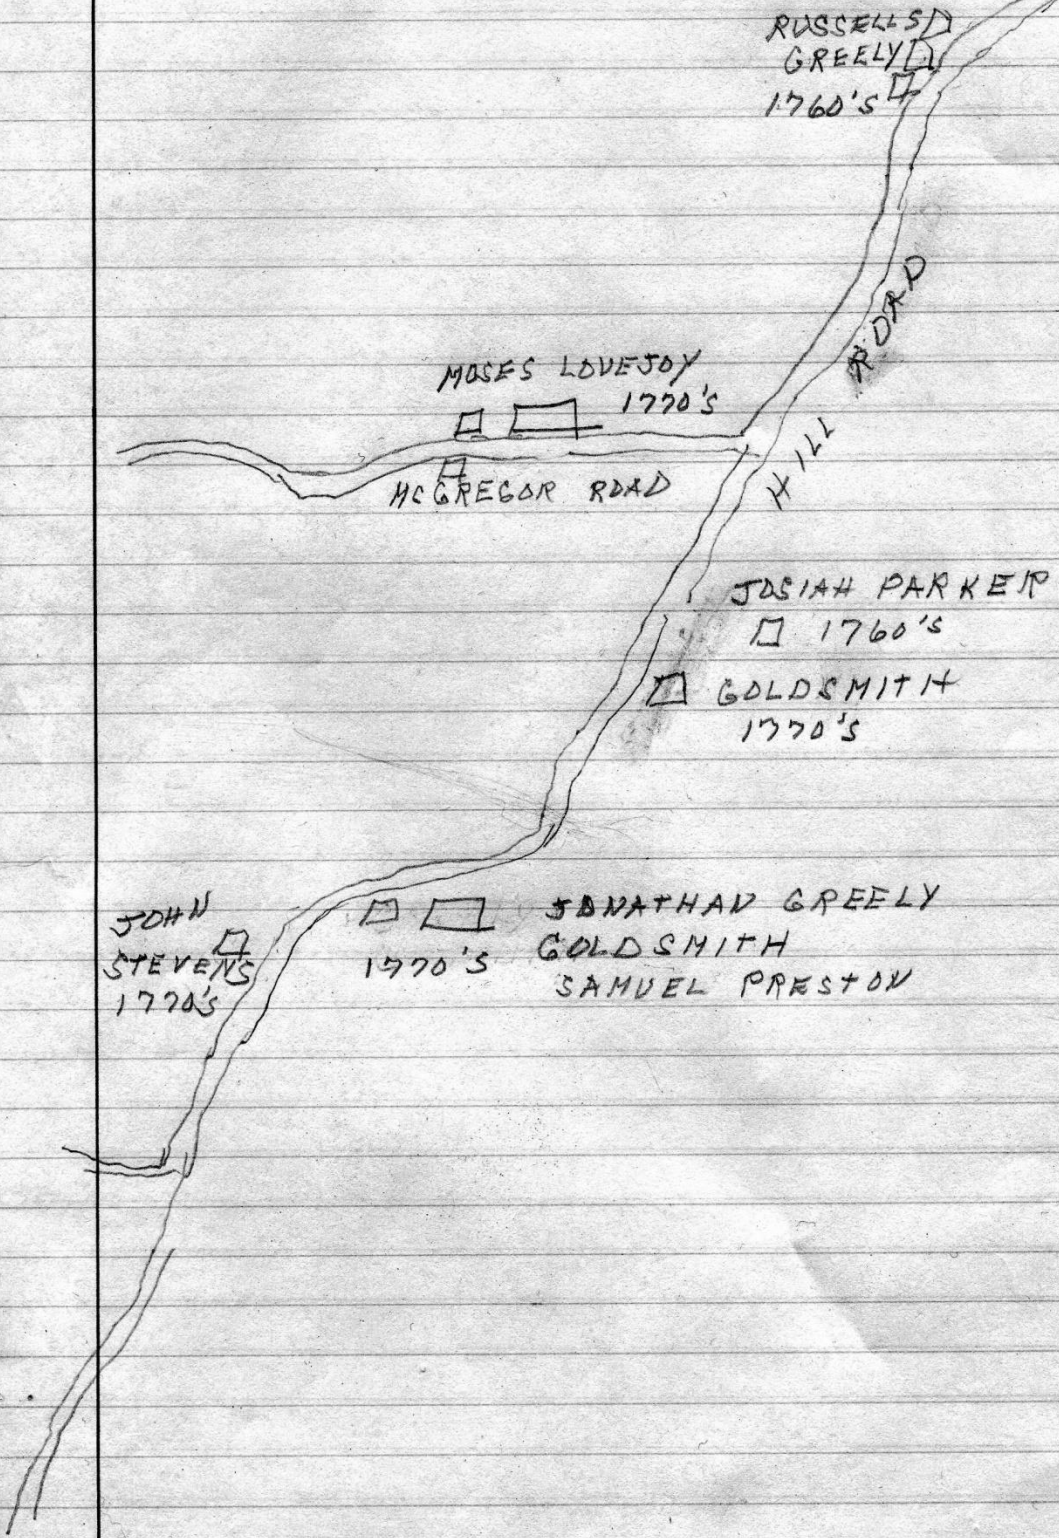 RUSSELLS
GREELY
1760'S
HILL ROAD
MOSES LOVEJOY
1770'S
MCGREGOR ROAD
JOSIAH PARKER
1760'S
GOLDSMITH
1770'S
JOHN
STEVENS
1770'S
1770'S
JONATHAN GREELY
GOLDSMITH
SAMUEL PRESTON